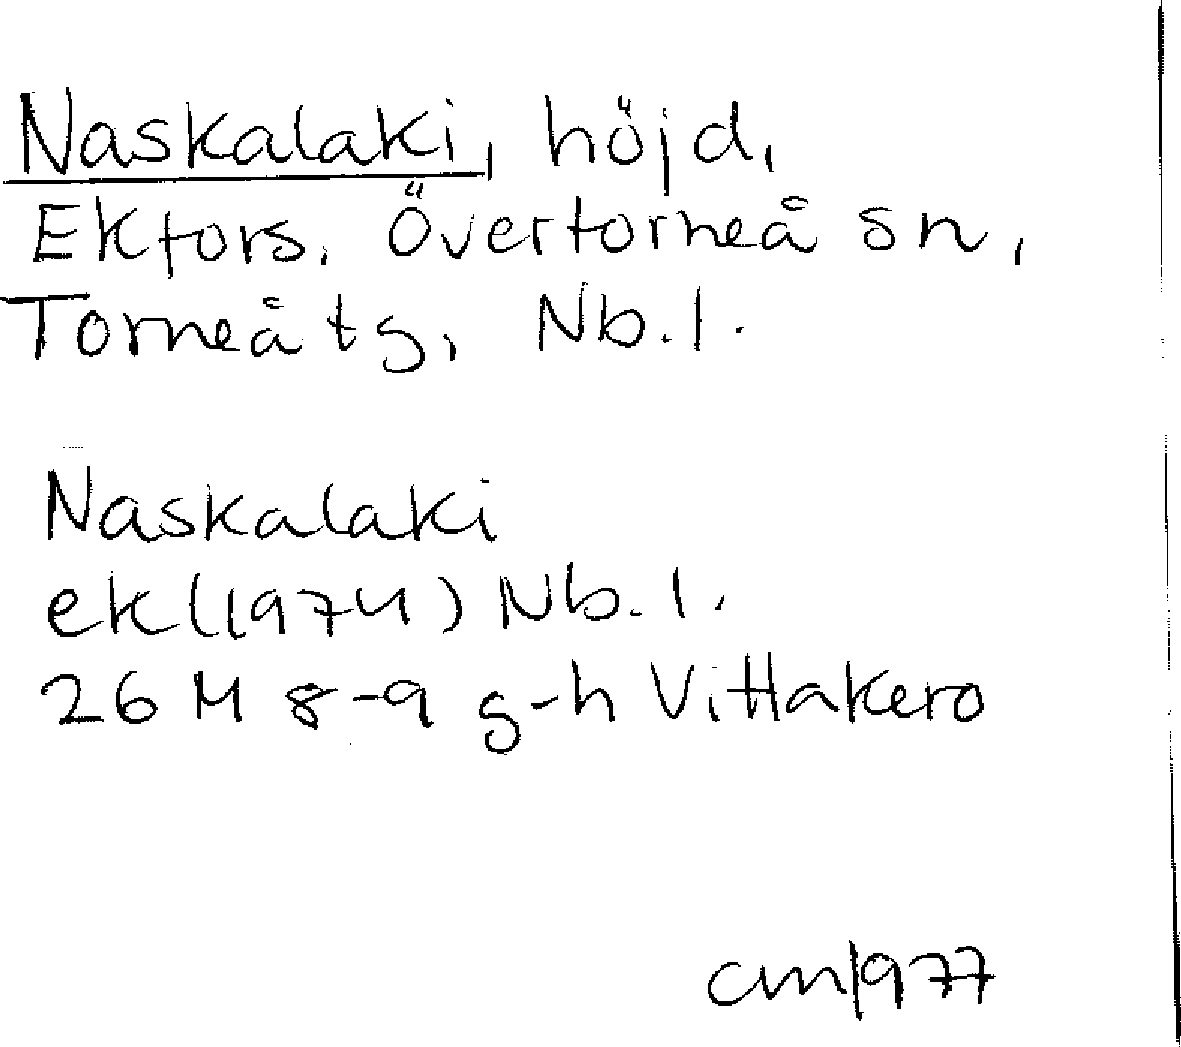 Naskalaki, höjd,
Ekfors, Övertorneå sn,
Torneå tg, Nb.l.
Naskalaki
ek (1974) Nb.l.
26 M 8-9 g-h Vittakero
cm 1977